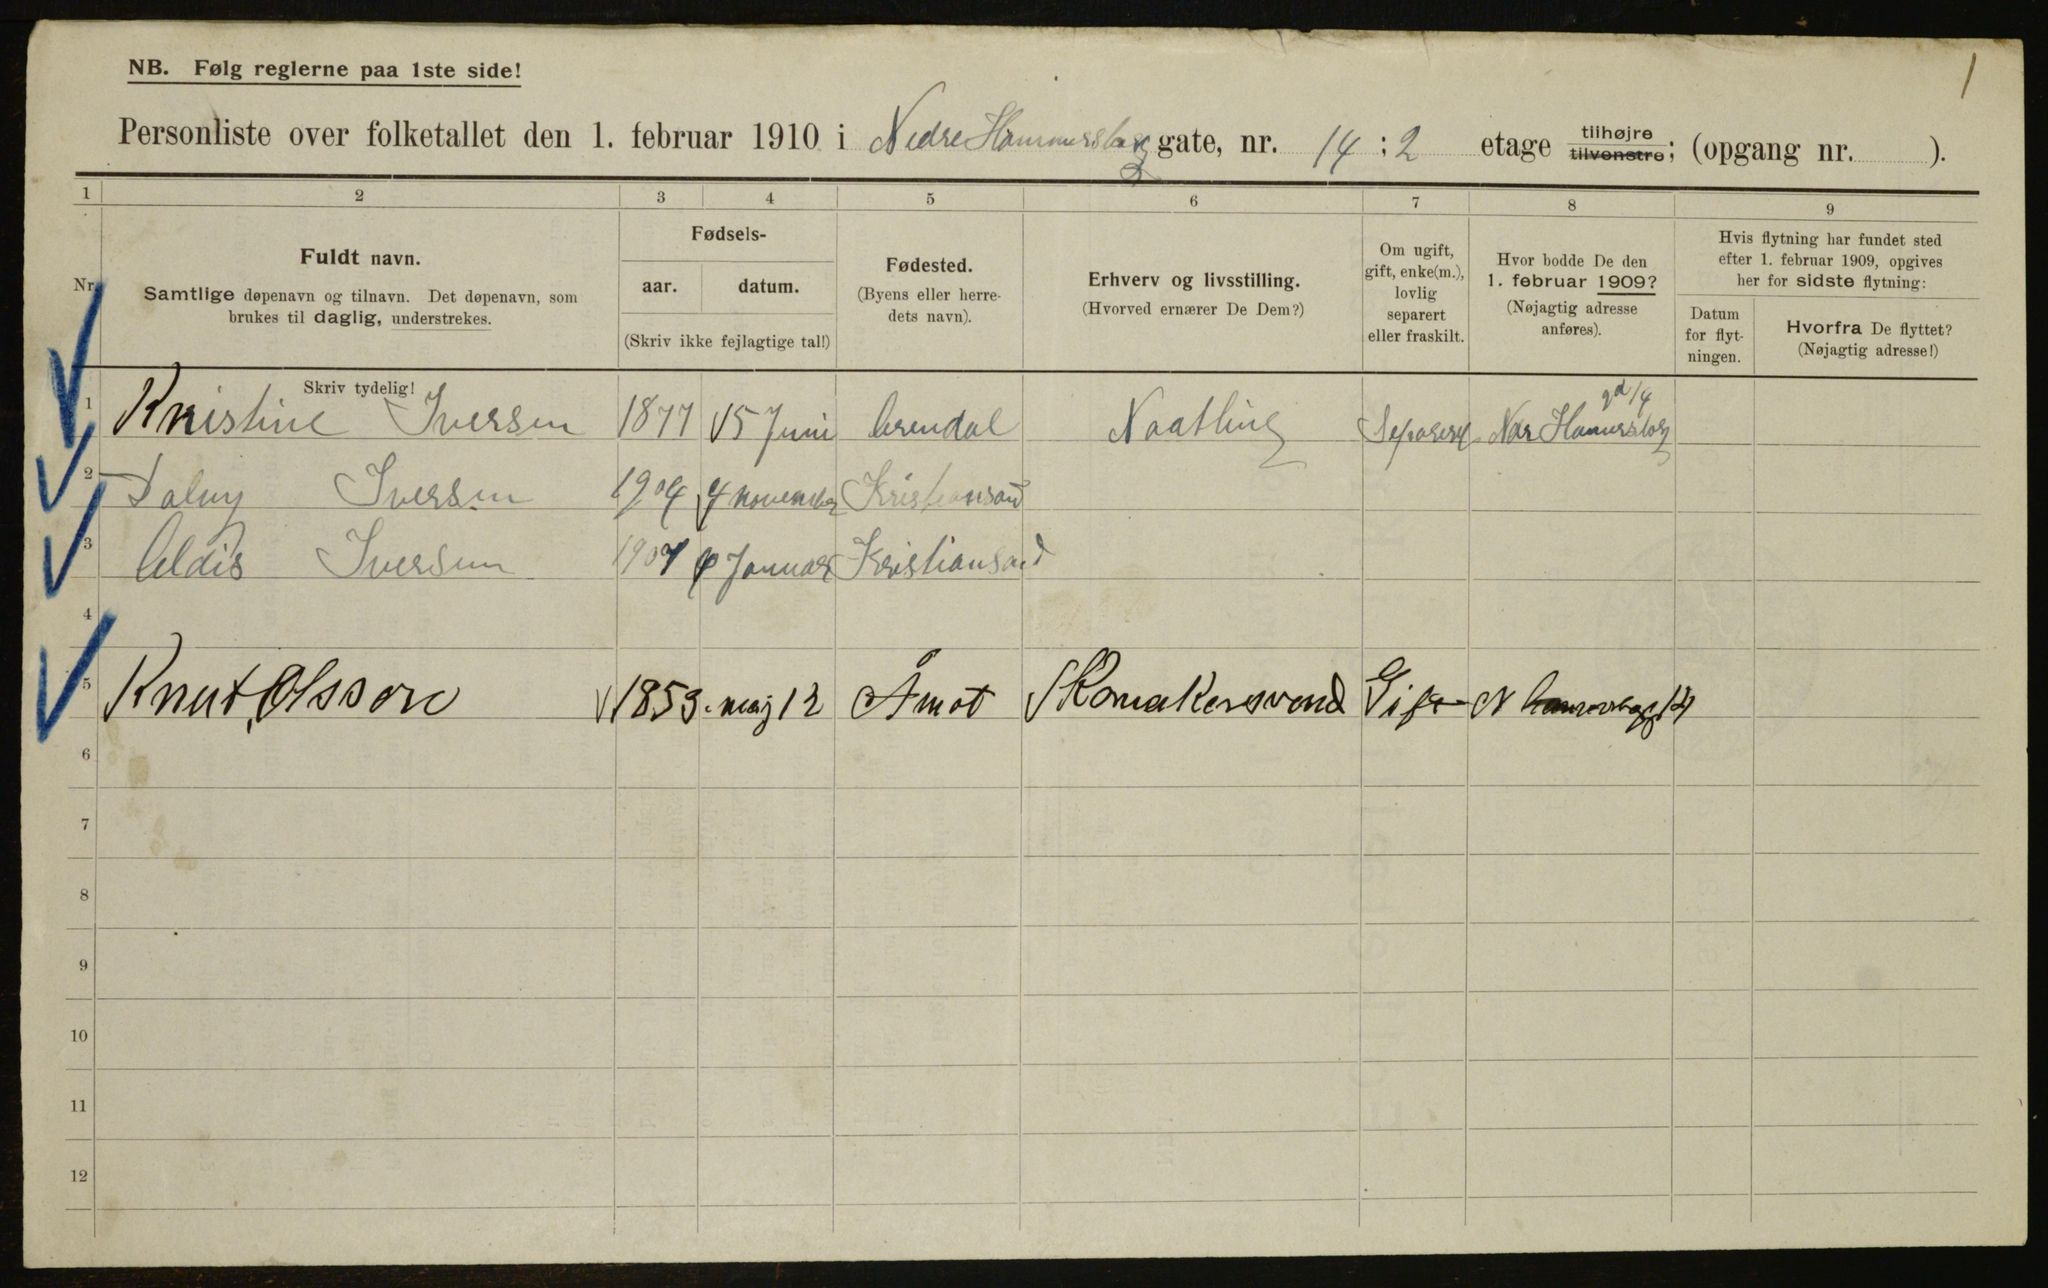 1
NB. Følg reglerne paa 1ste side!
Personliste over folketallet den 1. februar 1910 i Nedre Hammersborg gate, nr. 14 : 2 etage tilhøjre tilvenstre; (opgang nr. ).
1 2 3 4 5 6 7 8 9
Nr.
Fuldt navn.
Samtlige døpenavn og tilnavn. Det døpenavn, som
brukes til daglig, understrekes.
Skriv tydelig!
Fødsels-
aar. datum.
(Skriv ikke fejlagtige tal!)
Fødested.
(Byens eller herre-
dets navn).
Erhverv og livsstilling.
(Hvorved ernærer De Dem?)
Om ugift,
gift, enke(m.),
lovlig
separert
eller fraskilt.
Hvor bodde De den
1. februar 1909?
(Nøjagtig adresse
anføres).
Hvis flytning har fundet sted
efter 1. februar 1909, opgives
her for sidste flytning:
Datum
for flyt-
ningen.
Hvorfra De flyttet?
(Nøjagtig adresse!)
1 Kristine Iversen 1877 15 Juni Arendal Separert 14
2 Iversen 1904 4 november Kristiansand
3 Aldis Iversen 1907 Januar Kristiansand
4
5 Knut Olsson 1853 maj 12 Åmot Skomakersvend Gift N 14
6
7
8
9
10
11
12